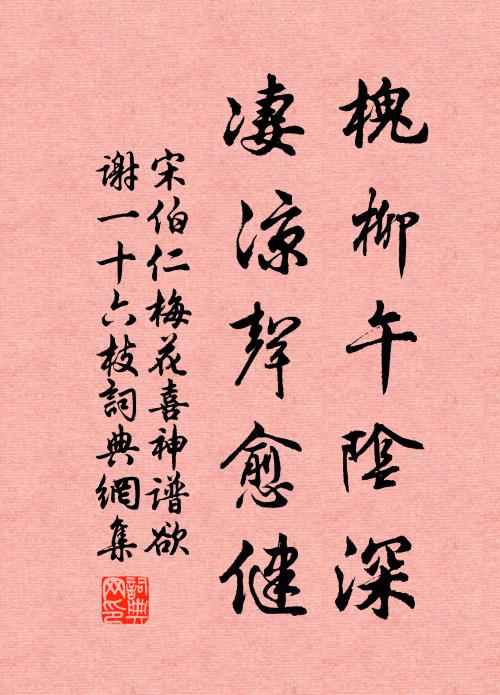 槐柳午陰深
凄涼聲愈健
宋伯仁梅花喜神譜欲
謝一十六枝詞典網集
詞典
网印